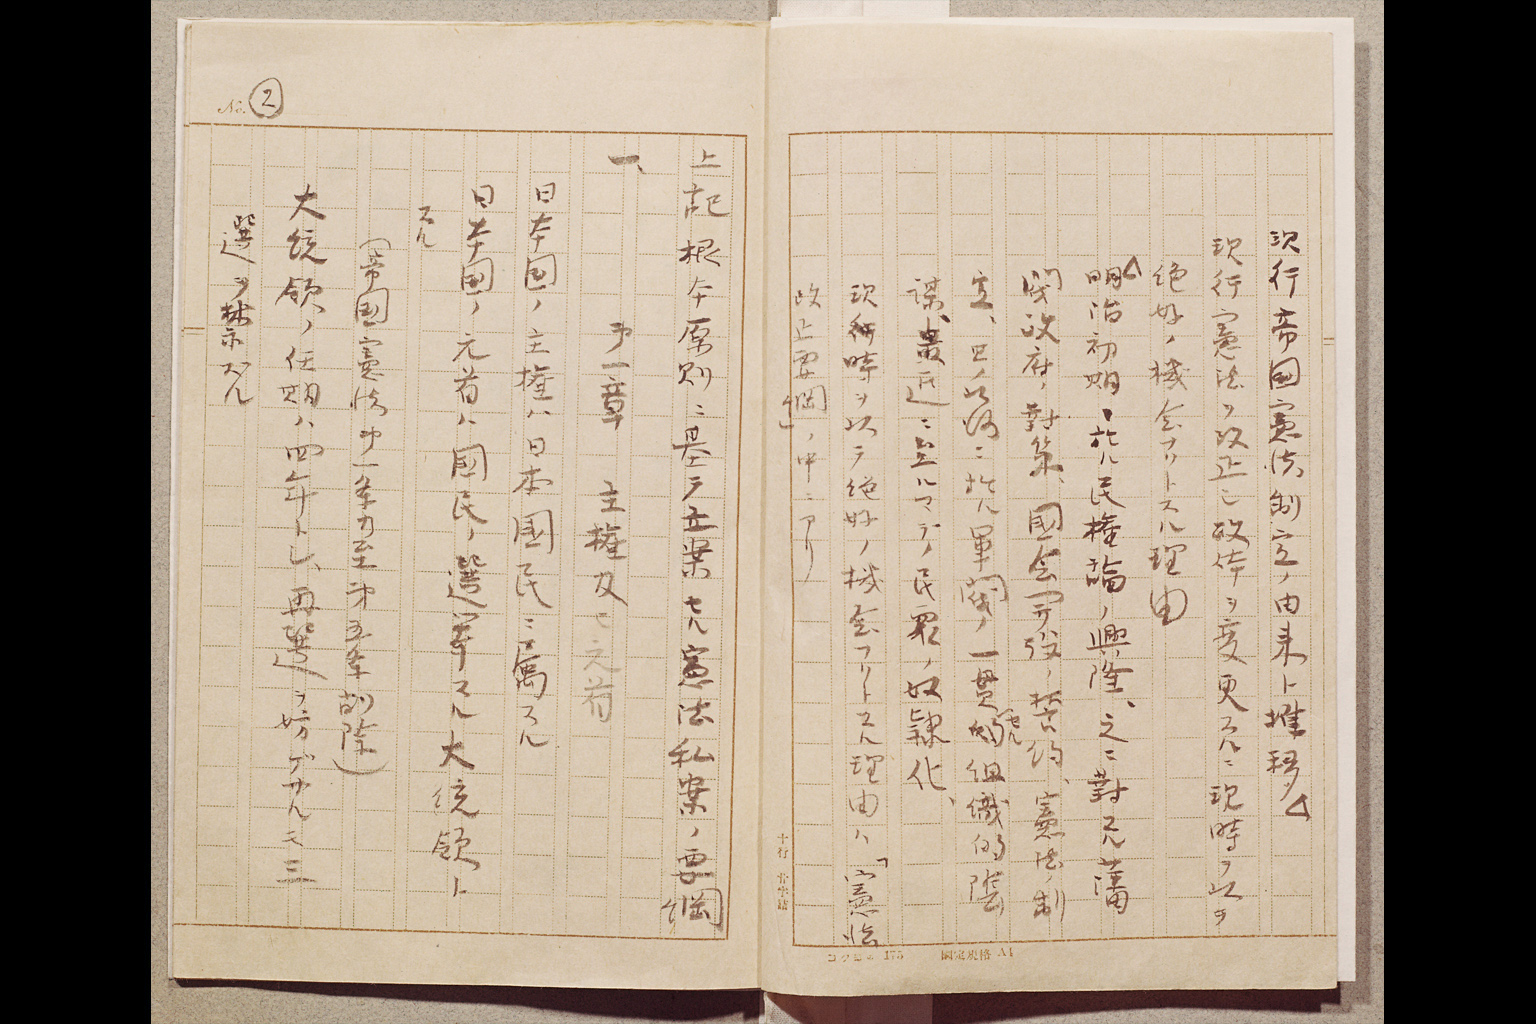 現行帝国憲法制定ノ由来ト推移
現行憲法ヲ改正シ政体ヲ変更スルニ現時ヲ以テ
絶好ノ機会ナリトスル理由
明治初期ニ於ル民権論ノ興隆、之ニ対スル藩
閥政府ノ對策、國会開設ノ契約、憲法ノ制
定、
軍閥ノ一貫セル組織的陰
謀、最近ニ至ルマデノ民衆ノ奴隷化、
現行時ヲ以テ絶好ノ機会ナリトスル理由ハ「憲法
改正要綱」ノ中ニアリ
コクヨ 175 國定規格 A4
No. 2
上記根本原則ニ基ラ立案セル憲法私案ノ要綱
一、
第一章 主権及ビ元首
日本國ノ主権ハ日本國民ニ属スル
日本國ノ元首ハ國民ノ選挙スル大統領ト
スル
(帝国憲法第一条乃至第五条削除)
大統領ノ任期ハ四年トシ、再選ヲ妨ゲザルモ三
選ヲ禁ズル